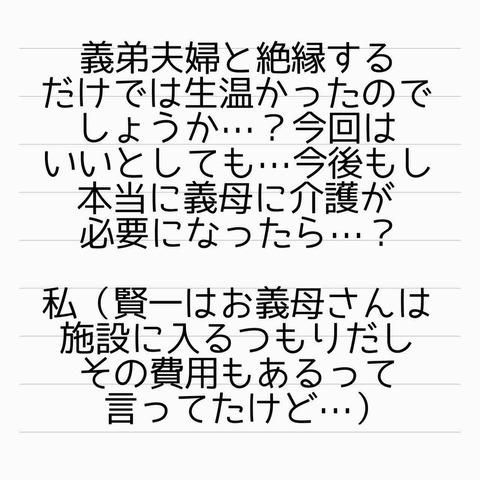 義弟夫婦と絶縁する
だけでは生温かったので
しょうか…？今回は
いいとしても…今後もし
本当に義母に介護が
必要になったら…？
私（賢一はお義母さんは
施設に入るつもりだし
その費用もあるって
言ってたけど…）